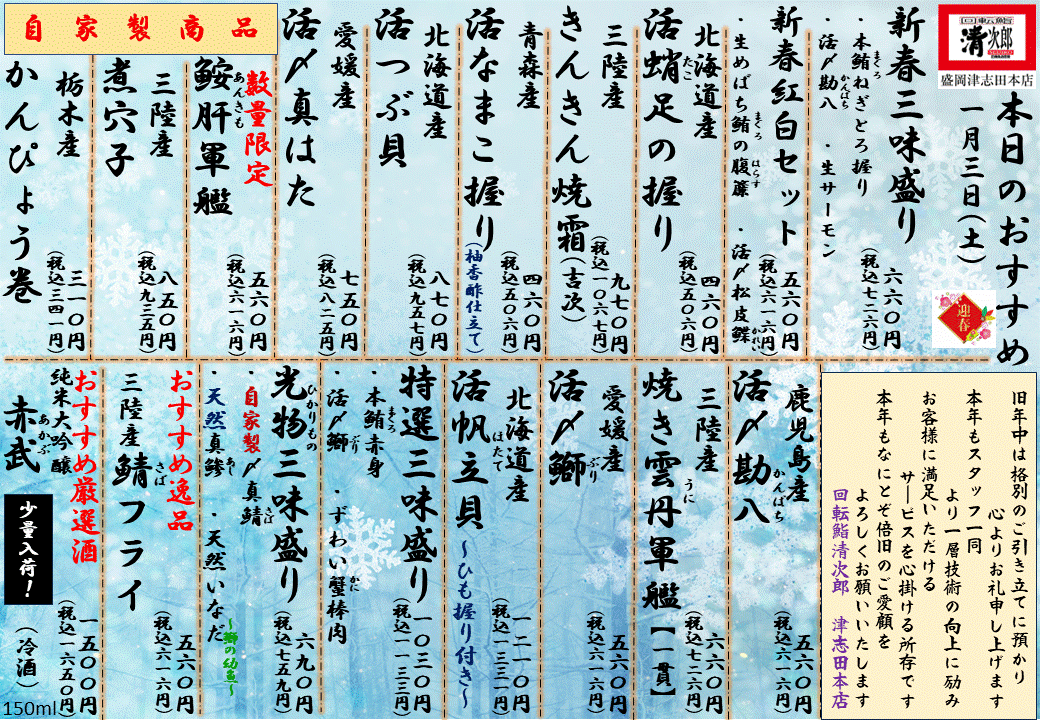 回転鮨
清次郎
盛岡津志田本店
本日のおすすめ
一月三日(土)
迎春
新春三味盛り
・本鮪ねぎとろ握り
まぐろ
・活〆勘八 ・生サーモン
かんぱち
六六〇円
(税込七二六円)
新春紅白セット
・生めばち鮪の腹簾 ・活〆松皮鰈
まぐろ はらす かれい
五六〇円
(税込六一六円)
北海道産
活蛸足の握り
たこ
四六〇円
(税込五〇六円)
三陸産
きんきん焼霜(吉次)
九七〇円
(税込一〇六七円)
青森産
活なまこ握り
(柚香酢仕立て)
四六〇円
(税込五〇六円)
北海道産
活つぶ貝
八七〇円
(税込九五七円)
愛媛産
活〆真はた
七五〇円
(税込八二五円)
自家製商品
数量限定
鮟肝軍艦
あんきも
五六〇円
(税込六一六円)
三陸産
煮穴子
八五〇円
(税込九三五円)
栃木産
かんぴょう巻
三一〇円
(税込三四一円)
旧年中は格別のご引き立てに預かり
心よりお礼申し上げます
本年もスタッフ一同
より一層技術の向上に励み
お客様に満足いただける
サービスを心掛ける所存です
本年もなにとぞ倍旧のご愛顧を
よろしくお願いいたします
回転鮨清次郎 津志田本店
鹿児島産
活〆勘八
かんぱち
五六〇円
(税込六一六円)
三陸産
焼き雲丹軍艦【一貫】
うに
六六〇円
(税込七二六円)
愛媛産
活〆鰤
ぶり
五六〇円
(税込六一六円)
北海道産
活帆立貝
ほたて
～ひも握り付き～
一二一〇円
(税込一三三一円)
特選三味盛り
・本鮪赤身 ・ずわい蟹棒肉
まぐろ かに
・活〆鰤
ぶり
一〇三〇円
(税込一一三三円)
光物三味盛り
ひかりもの
・自家製〆真鯖
さば
・天然真鯵 ・天然いなだ
あじ
～鰤の幼魚～
六九〇円
(税込七五九円)
おすすめ逸品
三陸産鯖フライ
さば
五六〇円
(税込六一六円)
おすすめ厳選酒
純米大吟醸
赤武
あかぶ
少量入荷！
(冷酒)
一五〇〇円
(税込一六五〇円)
150ml